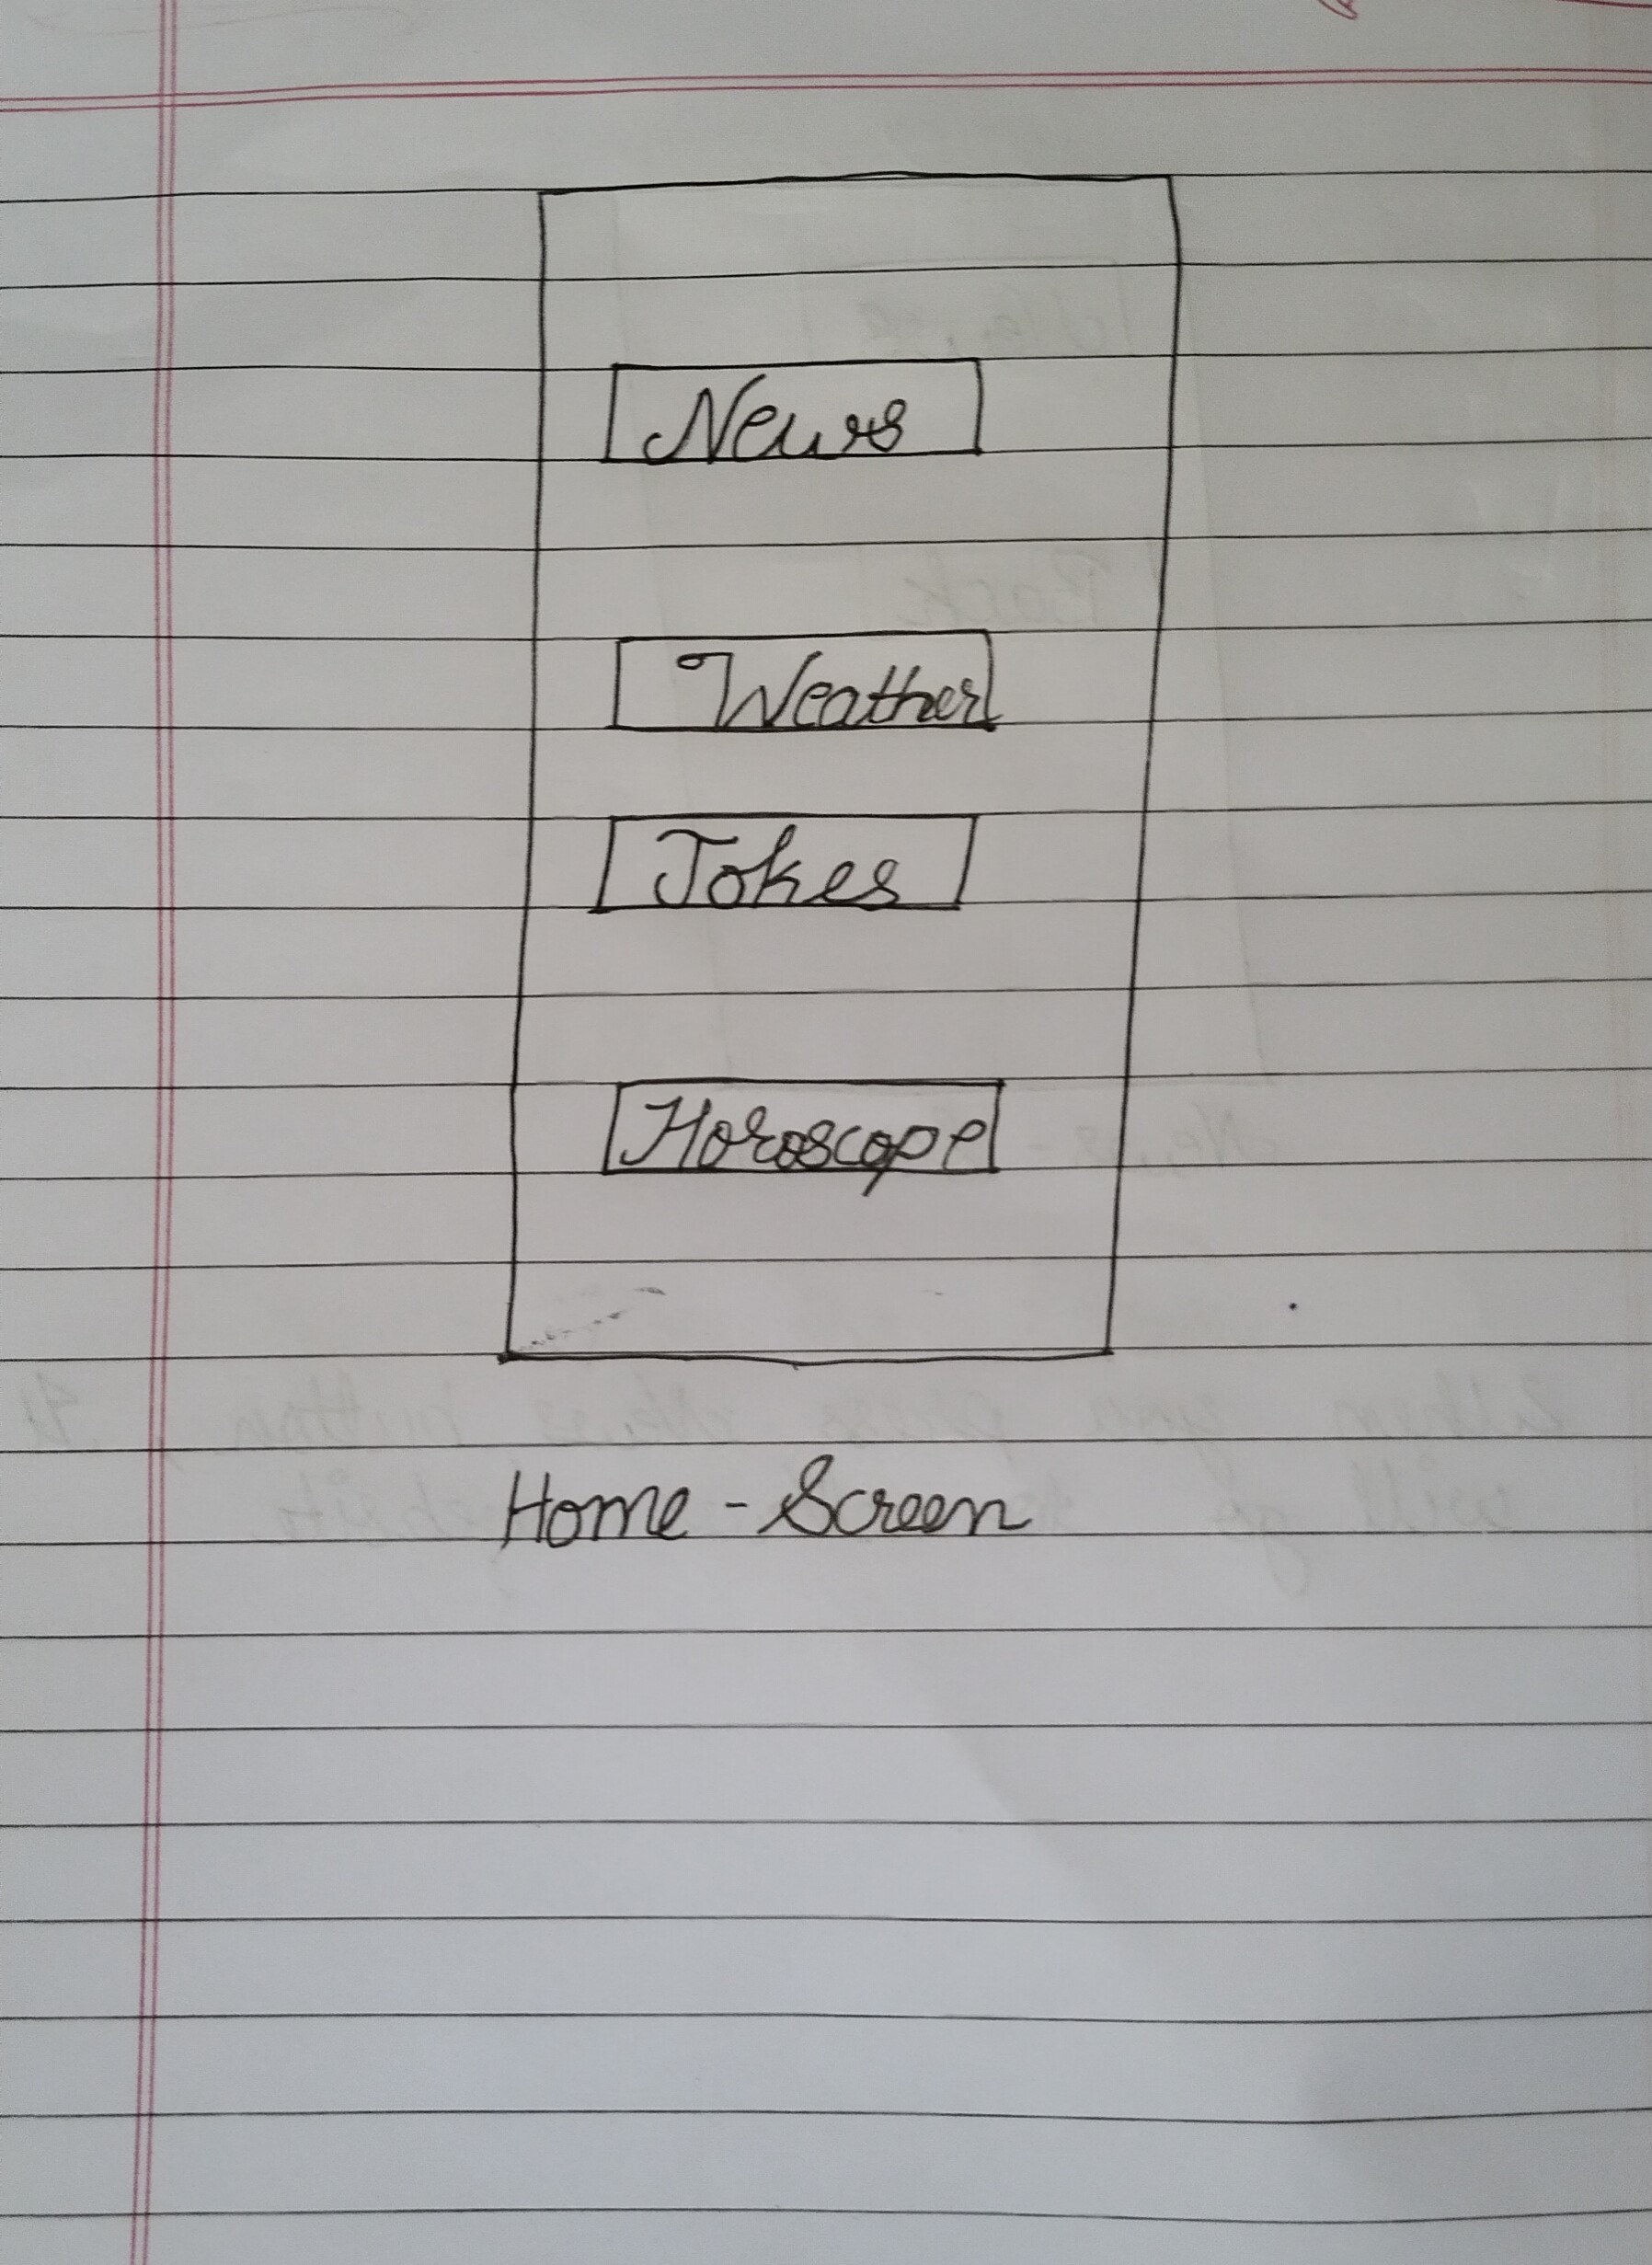 News
Weather
Jokes
Horoscope
Home - Screen